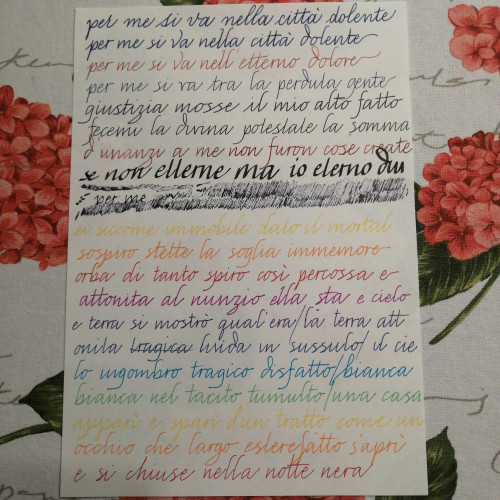 per me si va nella città dolente
per me si va nella città dolente
per me si va nell'etterno dolore
per me si va tra la perduta gente
giustizia mosse il mio alto fatto
fecemi la divina potestate la somma
d'unanzi a me non furon cose create
se non etterne ma io eterno du
per me
ei siccome immobile dato il mortal
sospiro stette la spoglia immemore
orba di tanto spiro così percossa e
attonita al nunzio ella sta e cielo
e terra si mostrò qual'era/la terra att
onita tragica livida in sussulo/il cie
lo ingombro tragico disfatto/bianca
bianca nel tacito tumulto/una casa
apparì e sparì d'un tratto come un
occhio che largo esterefatto s'aprì
e si chiuse nella notte nera